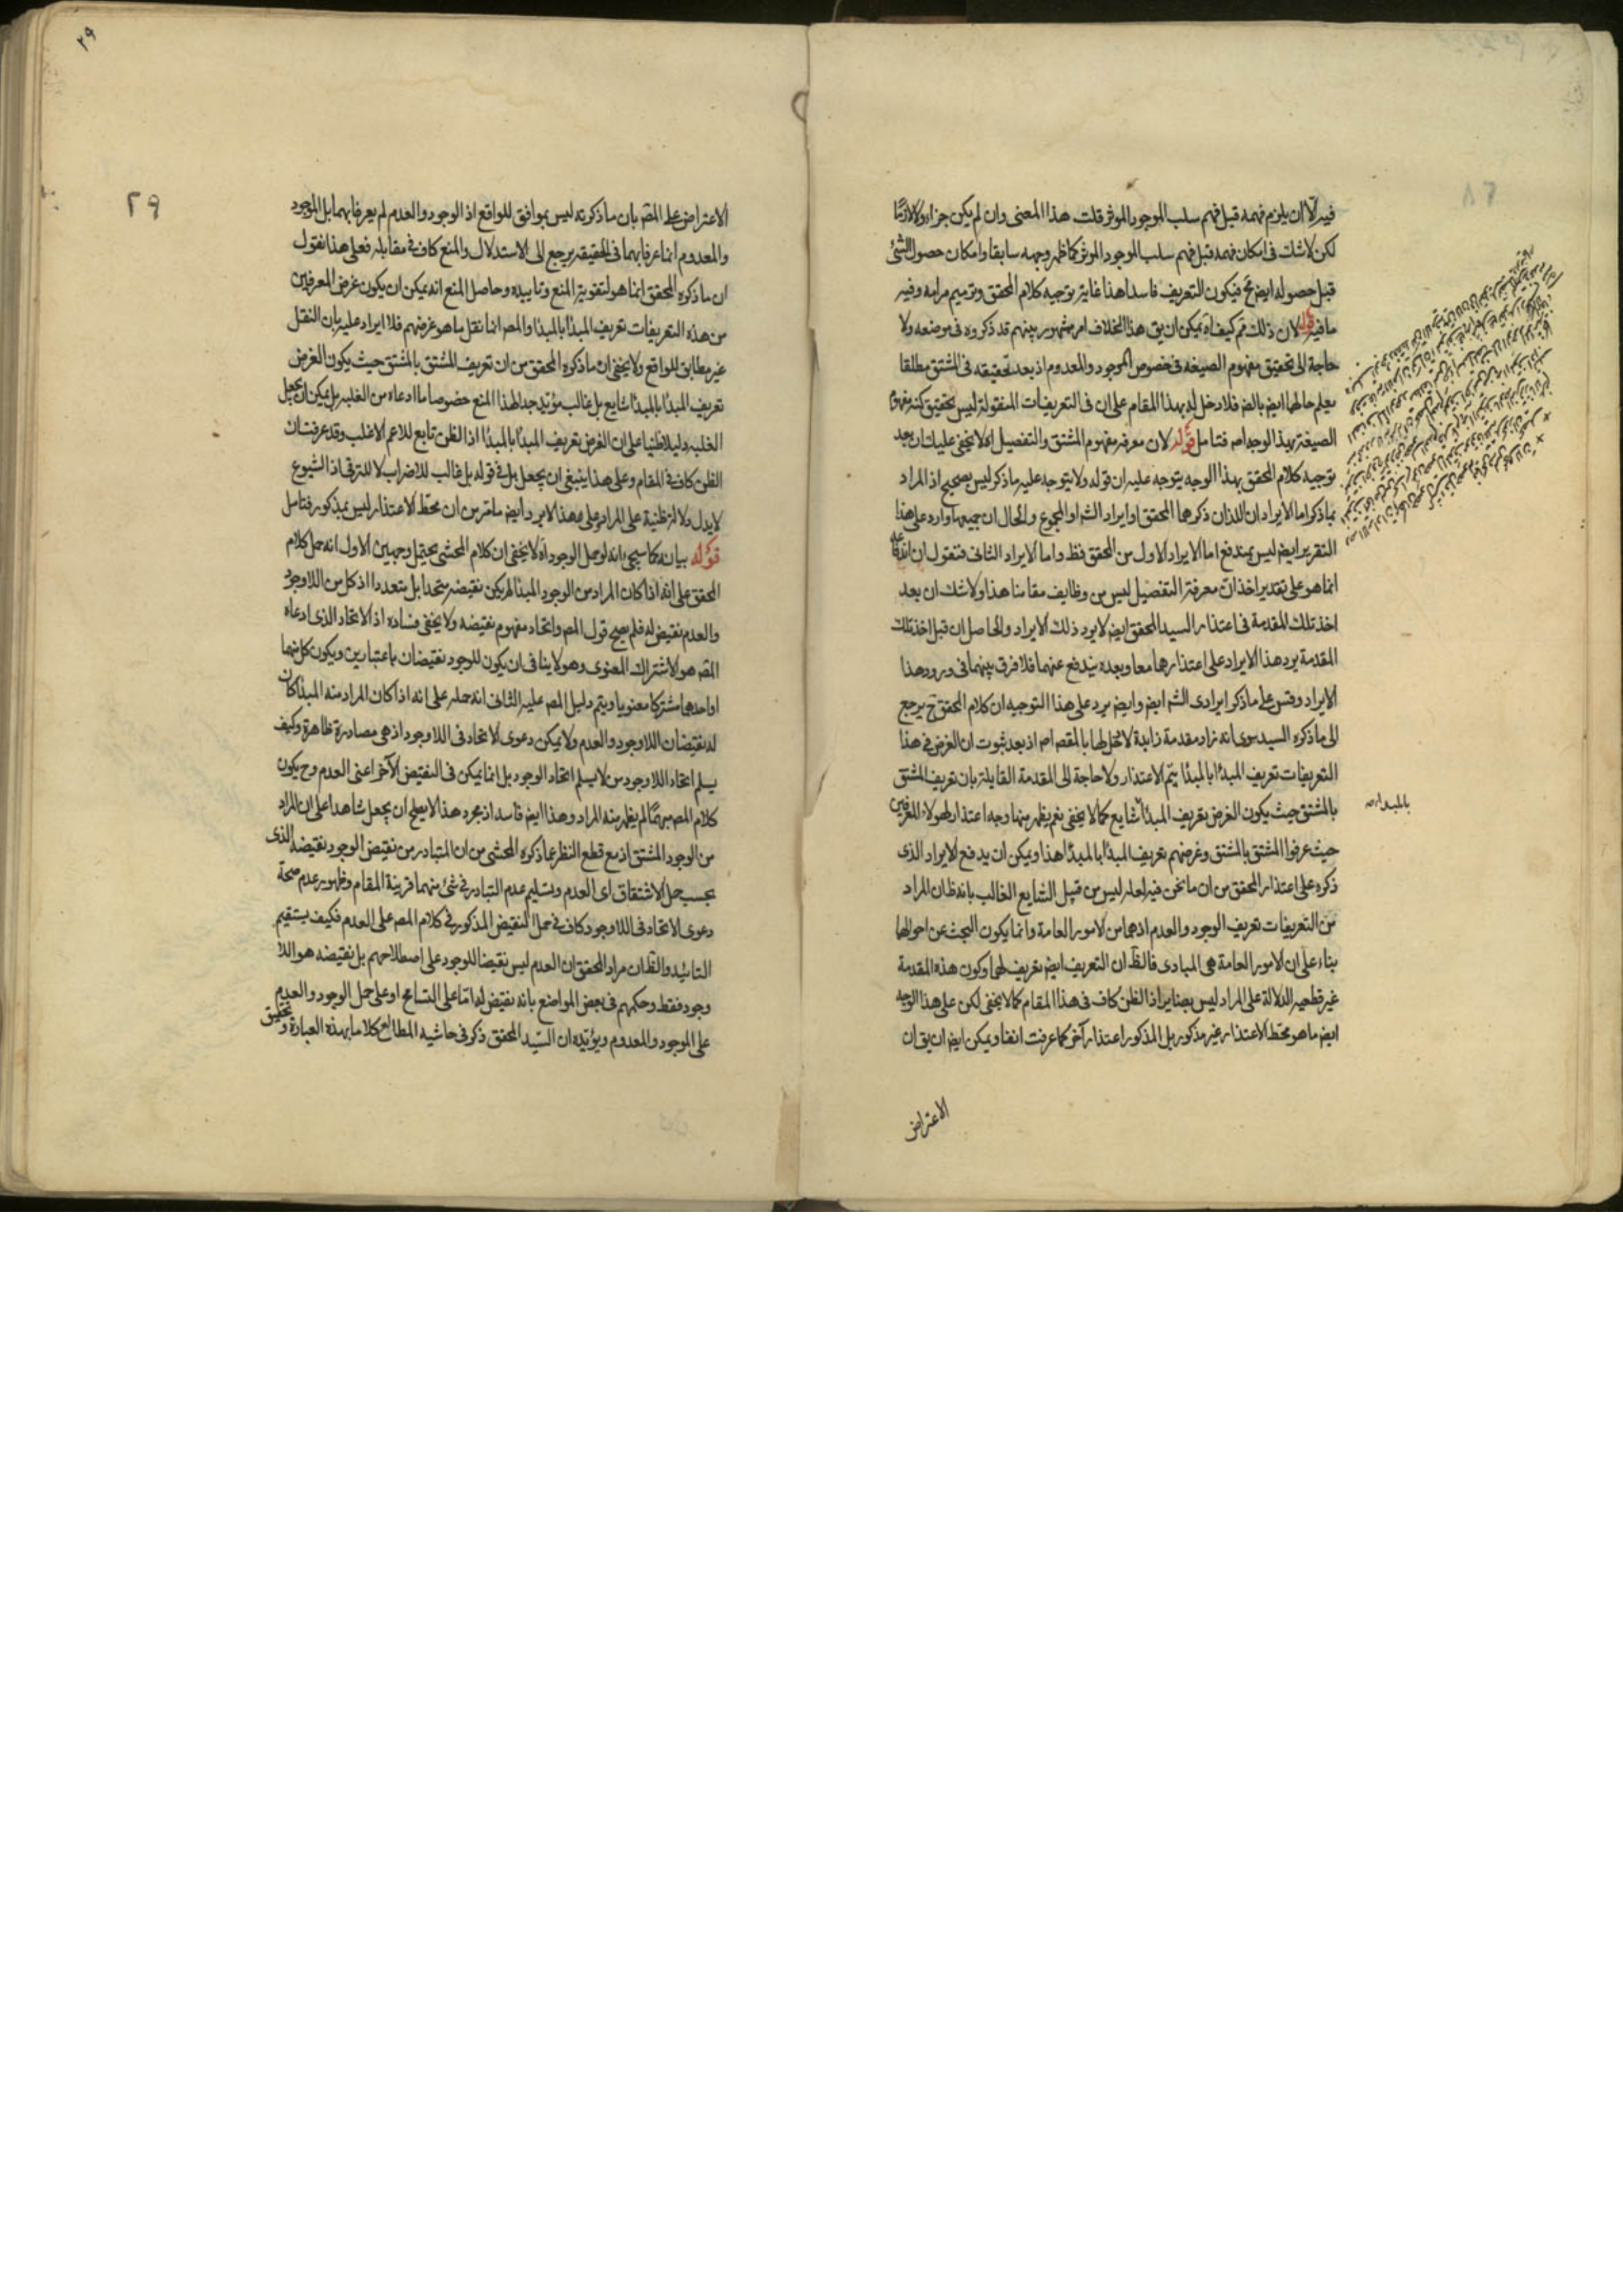 فيه الا ان يلزم فهمه قبل فهم سلب الموجود الموثر قلت هذا المعنى وان لم يكن جزاء ولا لازمًا
لكن لاشك فى امكان فهمه قبل فهم سلب الموجود الموثر كما ظهر وجهه سابقا وامكان حصول الشئ
قبل حصوله ايض مح فيكون التعريف فاسدا هذا غاية توجيه كلام المحقق وترميم مرامه وفيه
ما فيه قوله لان ذلك ثم كيف اه يمكن ان يق هذا الخلاف امر مشهور بينهم قد ذكروه فى موضعه ولا
حاجة الى تحقيق مفهوم الصيغه فى خصوص الموجود والمعدوم اذ بعد تحقيقه فى المشتق مطلقا
يعلم حالها ايض بالضر فلا دخل له بهذا المقام على ان فى التعريفات المنقولة ليس تحقيق كنه مفهوم
الصيغة بهذا الوجه اصه فتامل قوله لان معرفه مفهوم المشتق والتفصيل اه لا يخفى عليك ان بعد
توجيه كلام المحقق بهذا الوجه يتوجه عليه ان قوله ولا يتوجه عليه ما ذكر ليس بصحيح اذ المراد
بما ذكر اما الايرادان اللذان ذكرهما المحقق او ايراد الش او المجموع والحال ان جميعها وارد على هذا
التقرير ايض ليس بمندفع اما الايراد الاول من المحقق فظ واما الايراد الثانى فنقول ان اندفاعه
انما هو على تقدير اخذ ان معرفة التفصيل ليس من وظايف مقامنا هذا ولاشك ان بعد
اخذ تلك المقدمة فى اعتذار السيد المحقق ايض لا يرد ذلك الايراد والحاصل ان قبل اخذ تلك
المقدمة يرد هذا الايراد على اعتذارهما معا وبعده يندفع عنهما فلا فرق بينهما فى ورود هذا
الايراد وقس على ما ذكر ايرادى الش ايض وايض يرد على هذا التوجيه ان كلام المحقق ح يرجع
الى ما ذكره السيد سوى انه زاد مقدمة زايدة لا دخل لها بالمقص اصه اذ بعد ثبوت ان الغرض فى هذا
التعريفات تعريف المبدأ بالمبدأ يتم الاعتذار ولا حاجة الى المقدمة القايلة بان تعريف المشتق
بالمشتق حيث يكون الغرض تعريف المبدأ شايع كما لا يخفى نعم يظهر منها وجه اعتذار لهولاء المعرفين
بالمبدأ صح
حيث عرفوا المشتق بالمشتق وغرضهم تعريف المبدأ بالمبدأ هذا ويمكن ان يدفع الايراد الذى
ذكره على اعتذار المحقق من ان ما نحن فيه لعله ليس من قبيل الشايع الغالب بانه ظ ان المراد
من التعريفات تعريف الوجود والعدم اذ هما من الامور العامة وانما يكون البحث عن احوالها
بناء على ان الامور العامة هى المبادى فالظ ان التعريف ايض تعريف لها وكون هذه المقدمة
غير قطعيه الدلالة على المراد ليس بضاير اذ الظن كاف فى هذا المقام كما لا يخفى لكن على هذا الوجه
ايض ما هو محط الاعتذار غير مذكور بل المذكور اعتذار آخر كما عرفت انفا ويمكن ايض ان يق ان
الاعتراض
٢٩
٢٩
الاعتراض على المص بان ما ذكرته ليس بموافق للواقع اذ الوجود والعدم لم يعرفا بهما بل الموجود
والمعدوم انما عرفا بهما فى الحقيقه يرجع الى الاستدلال والمنع كاف فى مقابله فعلى هذا نقول
ان ما ذكره المحقق انما هو لتقوية المنع وتاييده وحاصل المنع انه يمكن ان يكون غرض المعرفين
من هذه التعريفات تعريف المبدأ بالمبدأ والمص انما نقل ما هو غرضهم فلا ايراد عليه بان النقل
غير مطابق للواقع ولا يخفى ان ما ذكره المحقق من ان تعريف المشتق بالمشتق حيث يكون الغرض
تعريف المبدأ بالمبدأ شايع بل غالب مؤيد جدا لهذا المنع خصوصا ما ادعاه من الغلبه بل يمكن ان يجعل
الغلبه دليلا ظنيا على ان الغرض تعريف المبدأ بالمبدأ اذ الظن تابع للاعم الاغلب وقد عرفت ان
الظن كاف فى المقام وعلى هذا ينبغى ان يجعل بل فى قوله بل غالب للاضراب لا للترقى اذ الشيوع
لا يدل دلالة ظنية على المراد وعلى هذا لا يرد ايض ما مر من ان محط الاعتذار ليس بمذكور فتامل
قوله بيانه كما سيجئ بانه لو حمل الوجود اه لا يخفى ان كلام المحشى يحتمل وجهين الاول انه حمل كلام
المحقق على انه اذا كان المراد من الوجود المبدأ لم يكن نقيضه متحدا بل متعددا اذ كل من اللاوجود
والعدم نقيض له فلم يصح قول المص واتحاد مفهوم نقيضه ولا يخفى فساده اذ الاتحاد الذى ادعاه
المص هو الاشتراك المعنوى وهو لا ينافى ان يكون للوجود نقيضان باعتبارين ويكون كل منهما
او احدهما مشتركا معنويا ويتم دليل المص عليه الثانى انه حمله على انه اذا كان المراد منه المبدأ كان
له نقيضان اللاوجود والعدم ولا يمكن دعوى الاتحاد فى اللاوجود اذ هى مصادرة ظاهرة وكيف
يسلم اتحاد اللاوجود من لا يسلم اتحاد الوجود بل انما يمكن فى النقيض الآخر اعنى العدم وح يكون
كلام المص مبهمًا لم يظهر منه المراد وهذا ايض فاسد اذ مجرد هذا لا يصلح ان يجعل شاهدا على ان المراد
من الوجود المشتق اذ مع قطع النظر عما ذكره المحشى من ان المتبادر من نقيض الوجود نقيضه الذى
بحسب حمل الاشتقاق اى العدم وتسليم عدم التبادر فى شئ منهما قرينة المقام وظهور عدم صحة
دعوى الاتحاد فى اللاوجود كاف فى حمل النقيض المذكور فى كلام المص على العدم فكيف يستقيم
التائيد والظ ان مراد المحقق ان العدم ليس نقيضا للوجود على اصطلاحهم بل نقيضه هو اللا
وجود فقط وحكمهم فى بعض المواضع بانه نقيض له اما على التسامح او على حمل الوجود والعدم
على الموجود والمعدوم ويؤيده ان السيد المحقق ذكر فى حاشيه المطالع كلاما بهذه العبارة وتحقيق